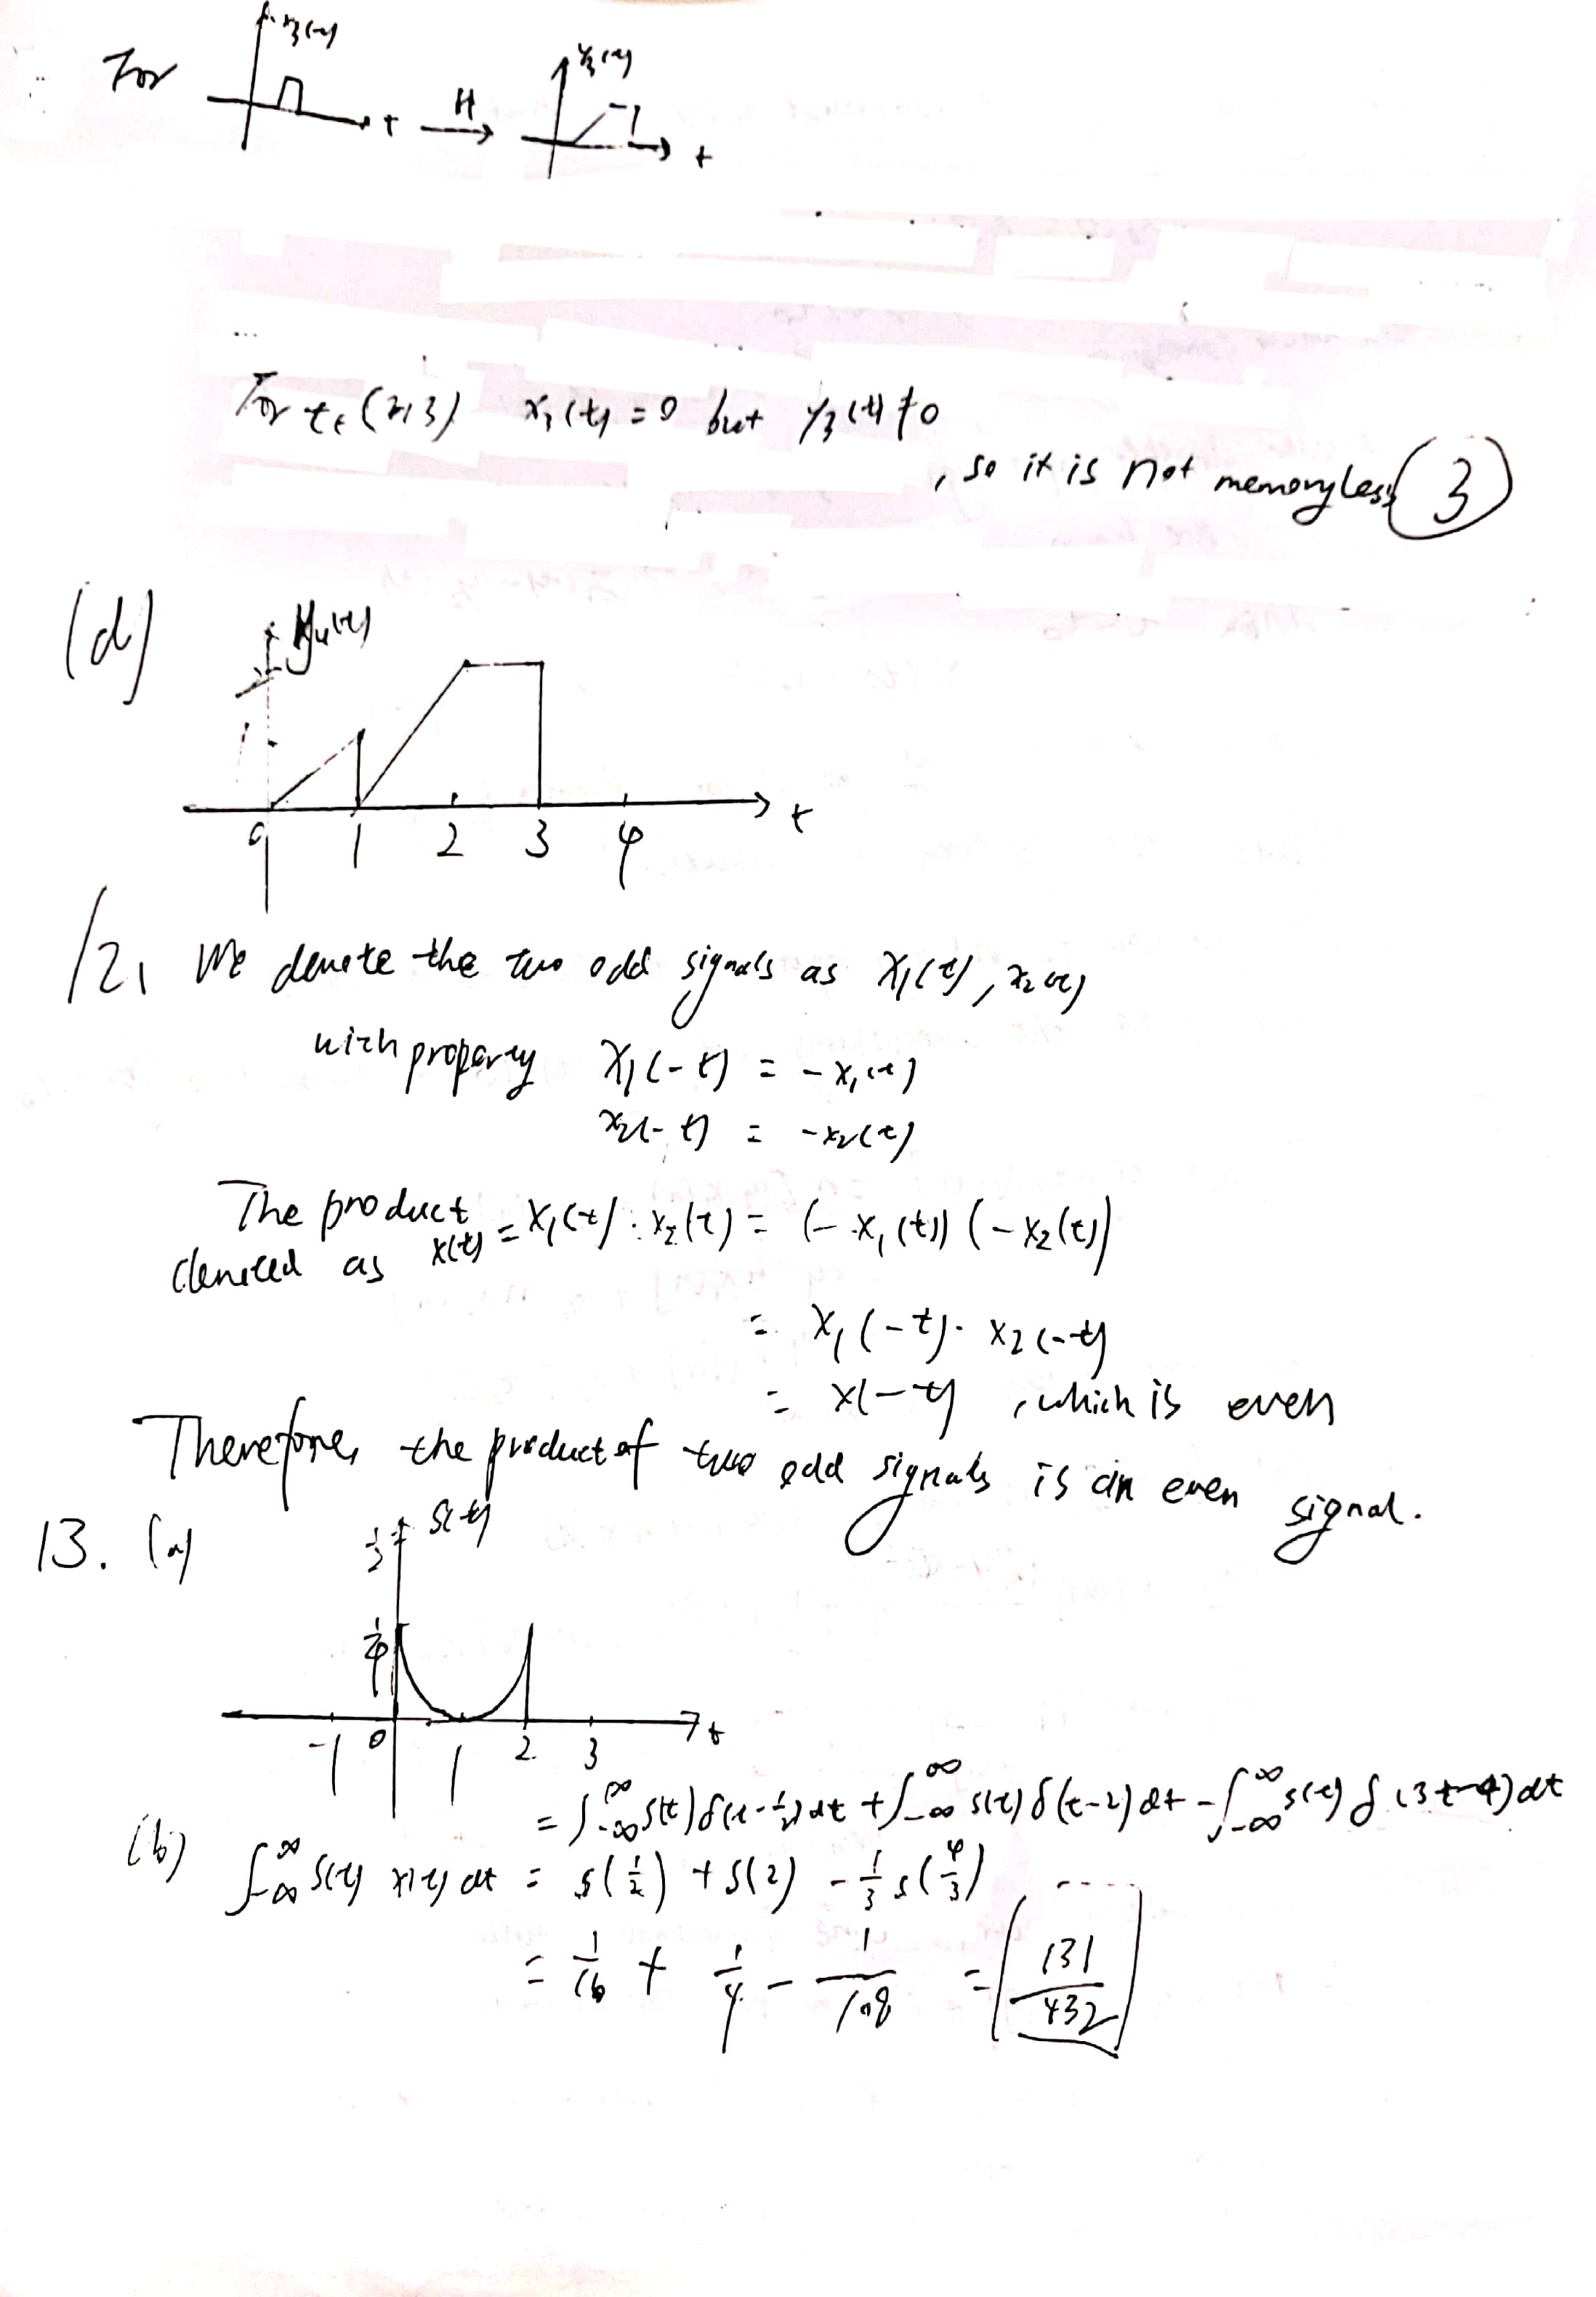 For x3(t) H y3(t)
t t
For t∈(2,3) x3(t)=0 but y3(t)≠0
, so it is not memoryless (3)
(d) y4(t)
1
0 1 2 3 4 t
12, We denote the two odd signals as x1(t), x2(t)
with property x1(-t) = -x1(t)
x2(-t) = -x2(t)
The product = x1(t) · x2(t) = (-x1(t)) (-x2(t))
denoted as x(t)
= x1(-t) · x2(-t)
= x(-t), which is even
Therefore, the product of two odd signals is an even signal.
13. (a) 1/2 s(t)
1/4
-1 0 1 2 3 t
= ∫-∞^∞ s(t) δ(t-1/2) dt + ∫-∞^∞ s(t) δ(t-2) dt - ∫-∞^∞ s(t) δ(3t-4) dt
(b) ∫-∞^∞ s(t) x(t) dt = s(1/2) + s(2) - 1/3 s(4/3)
= 1/16 + 1/4 - 1/108 = 131/432